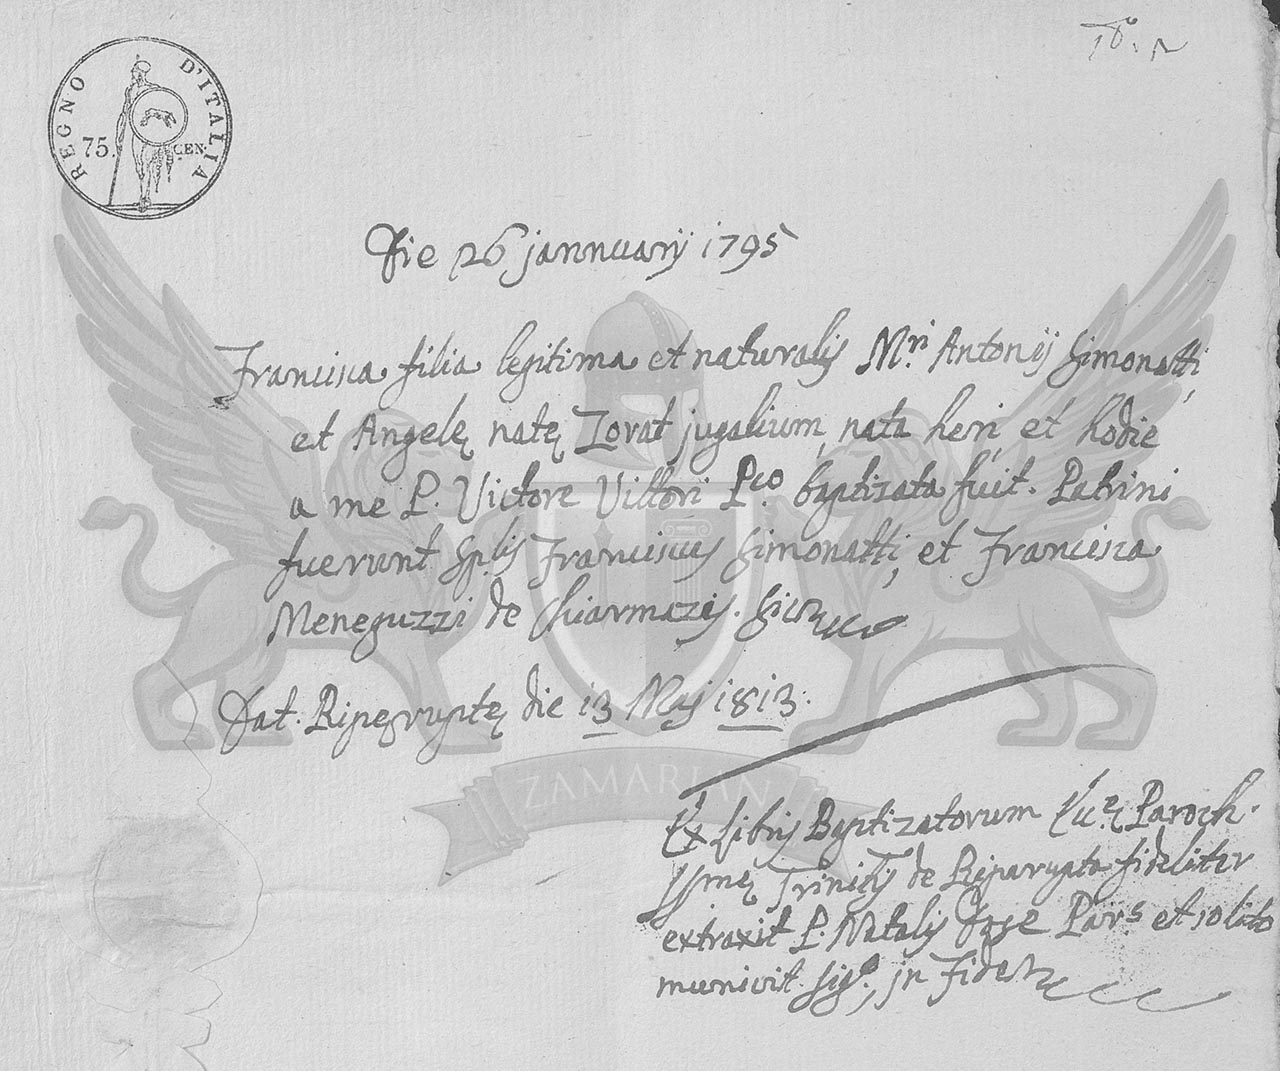 REGNO D'ITALIA
75. CEN.
Die 26 jannuarij 1795
Francisca filia legitima et naturalis M.ri Antonij Simonatti,
et Angelę natę Zorat jugalium, nata heri, et hodie
a me P. Victore Vittori P.co baptizata fuit. Patrini
fuerunt Sp.lis Franciscus Simonatti, et Francisca
Meneguzzi de Chiarmazis. Sic
Dat. Riperuptę die 13 Maij 1813.
ZAMARIAN
Ex Libris Baptizatorum Paroch.
SS.mę Trinitis de Riparupta fideliter
extraxit P. Natalis Par.s et solito
munivit sig.o, jn Fidem